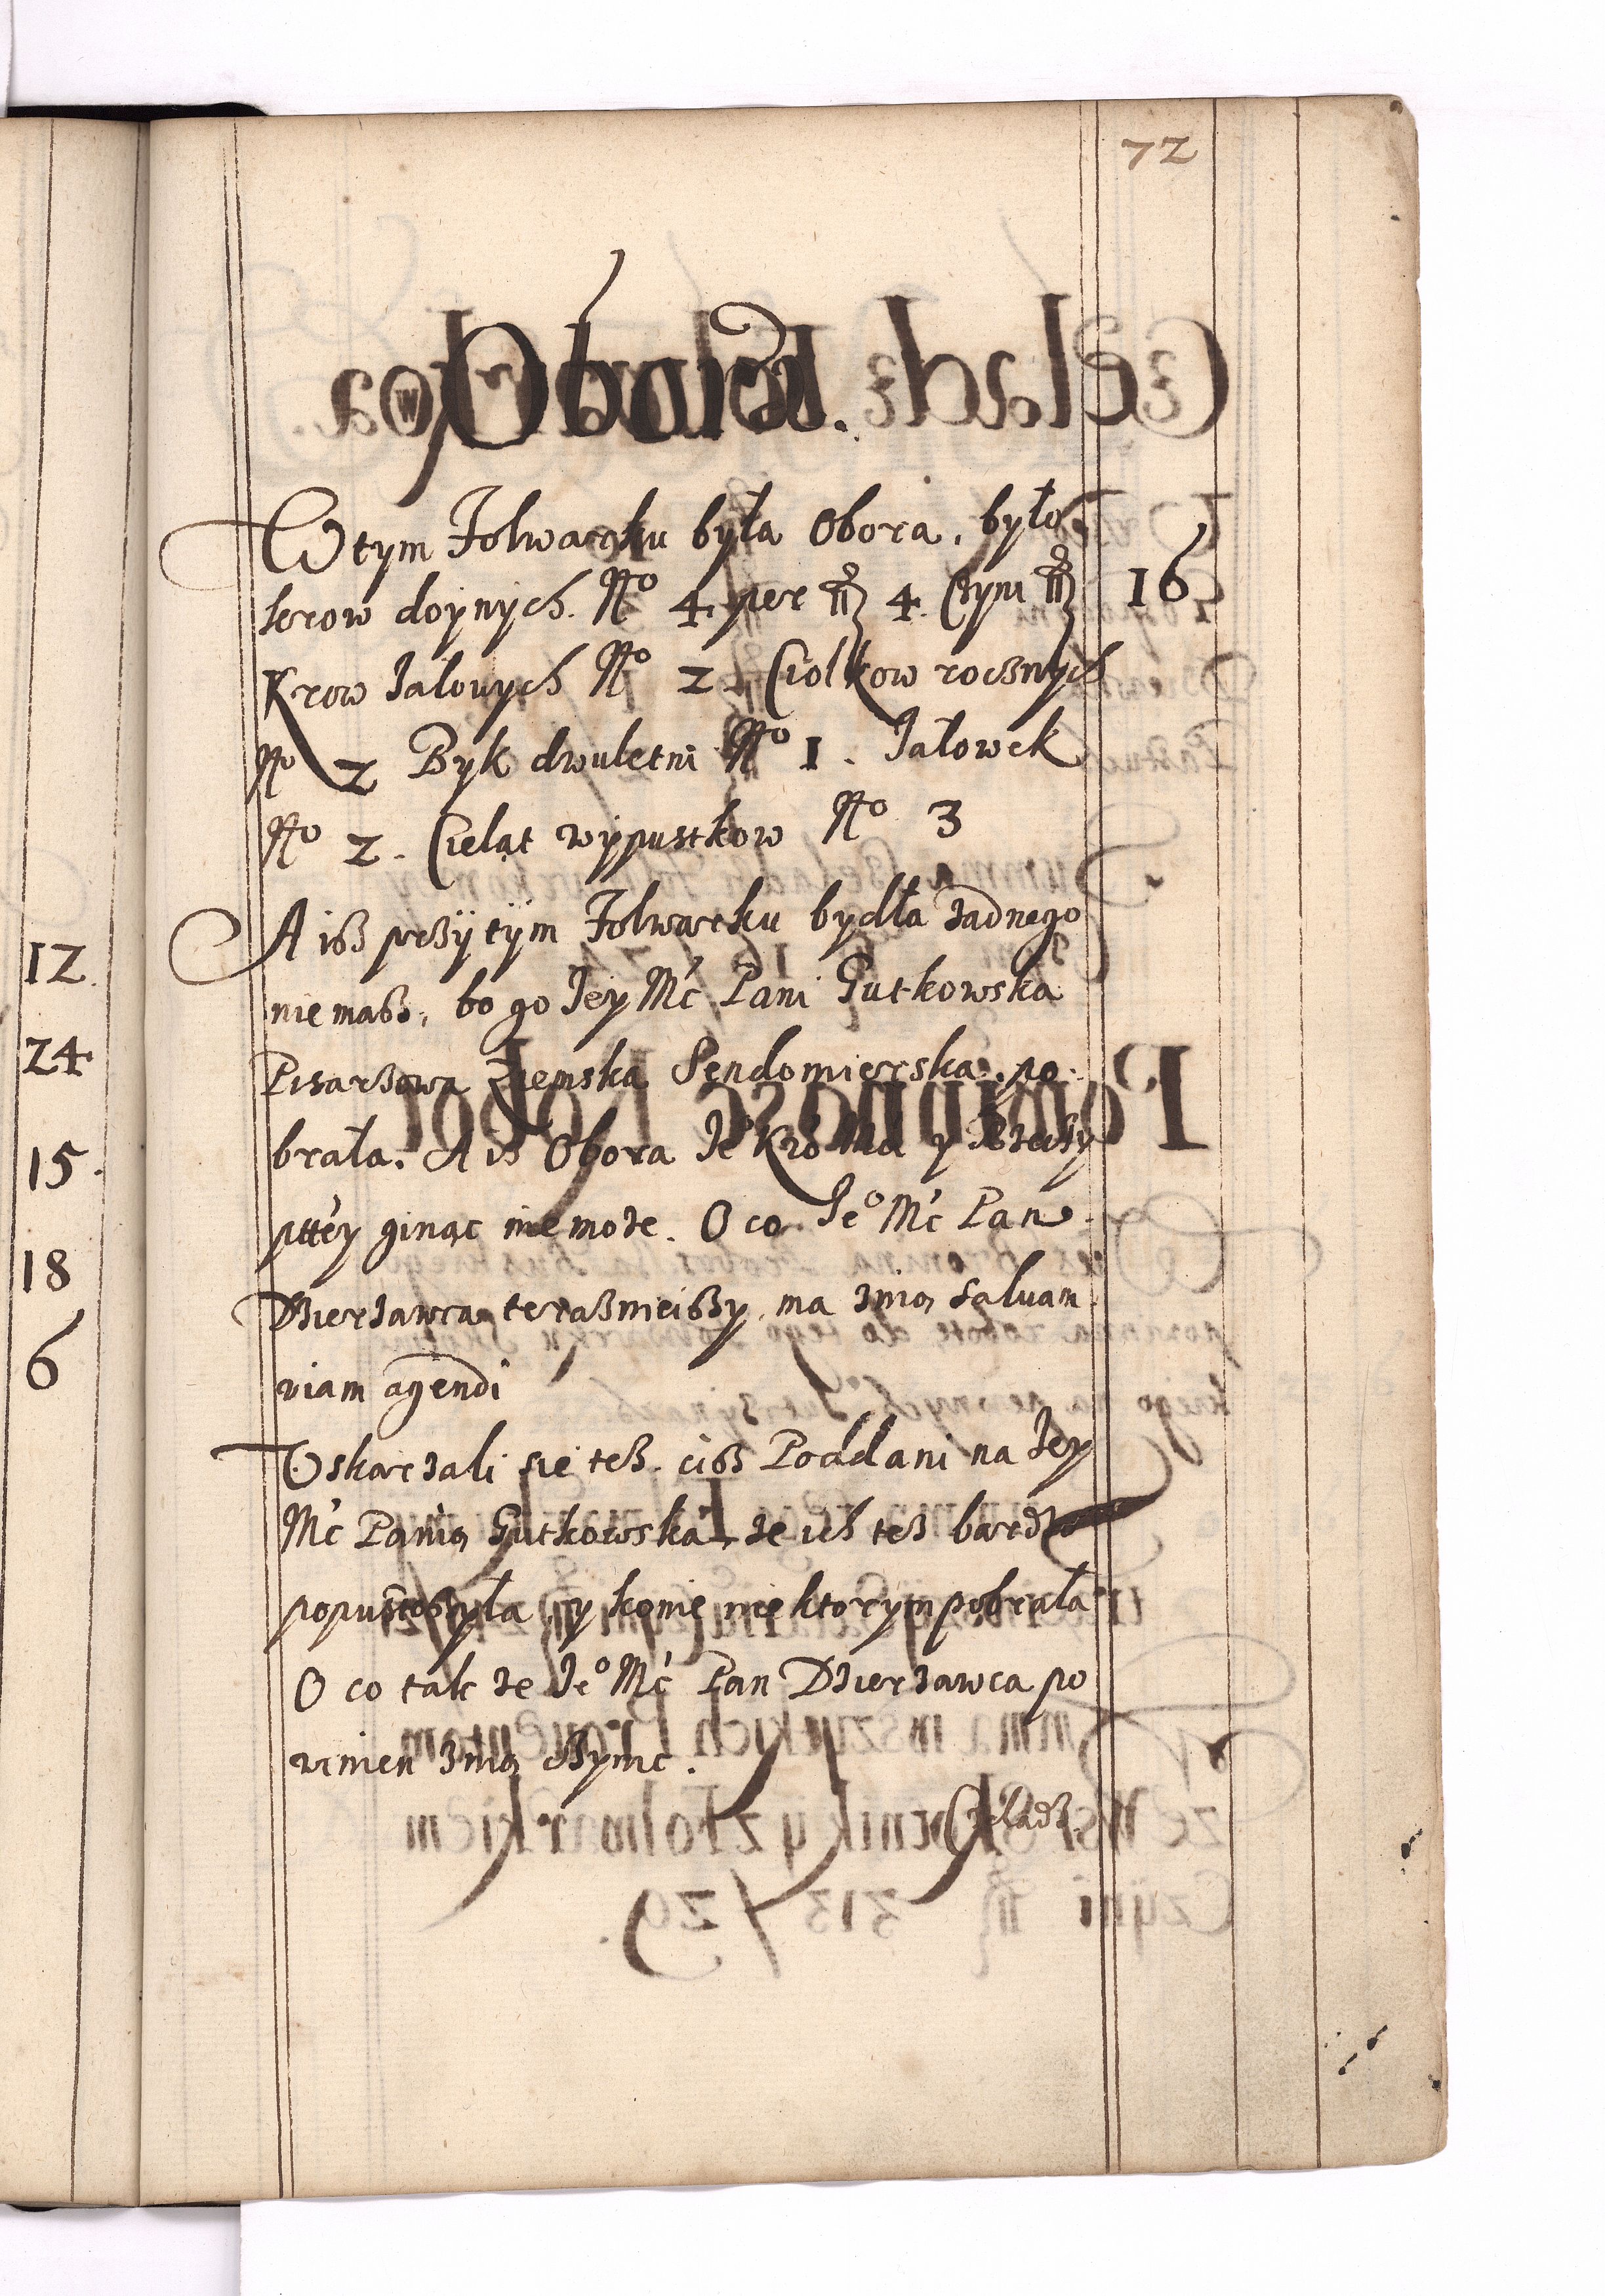 72
Obora.
W tym Folwarcku była Obora, było
krow doynych. No 4. per 4. Czyni 16
Krow Jalowych No 2. Ciolkow rocznych
No 2 Byk dwuletni No 1. Jałowek
No 2. Cieląt wypustkow No 3
A isz przÿ tÿm Folwarku bydła zadnego
nie masz, bo go Jey Mć Pani Gutkowska
Pisarzowa Ziemska Sendomierska po:
brała. A isz Obora Je Kro Mci y Rzeczy
pttéy ginąc nie moze. O co Jeo Mć Pan
Dzierzawca terasznieiszy, ma z nią saluam
viam agendi
Uskarzali się tesz. cisz Poddani na Jey
Mć Panią Gutkowską, ze ich tesz bardzo
popustoszyła, y konie niektorym pobrała
O co tak ze Jeo Mć Pan Dzierzawca po
winien z nią czynic.
Czeladz
12.
24.
15.
18
6